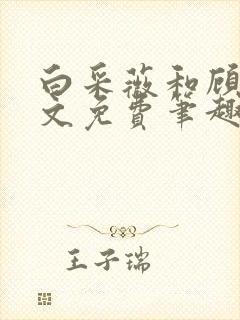 白采薇和顾
文免费笔趣
王子瑞